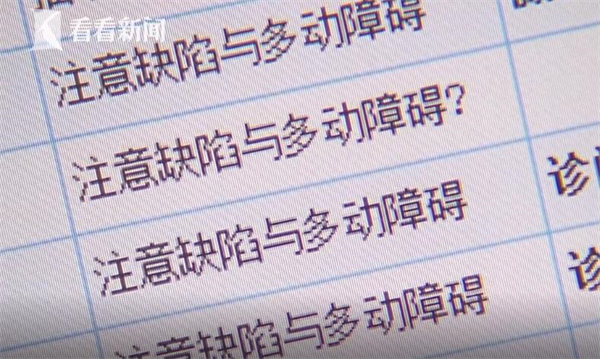 看看新闻
注意缺陷与多动障碍
注意缺陷与多动障碍?
注意缺陷与多动障碍
诊
注意缺陷与多动障碍
诊